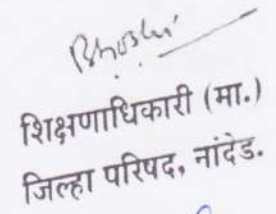 शिक्षणाधिकारी (मा.)
जिल्हा परिषद, नांदेड.